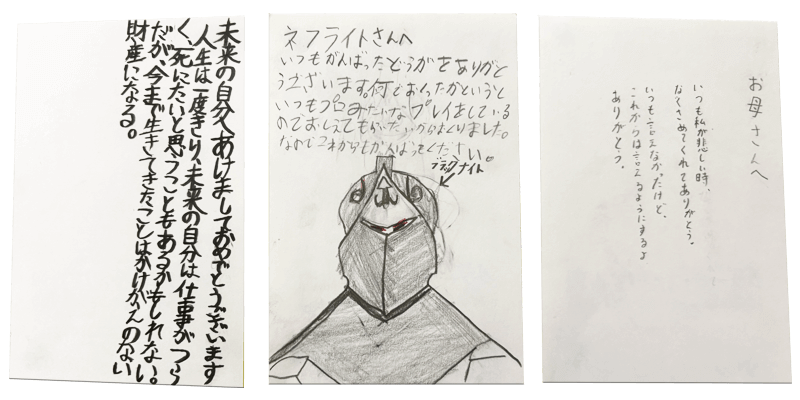 未来の自分へあけましておめでとうございます
人生は一度きり、未来の自分は仕事がつら
く、死にたいと思うこともあるかもしれない。
だが、今まで生きてきたことはかけがえのない
財産になる。
ネフライトさんへ
いつもがんばったどうがをありがと
うございます。何でおくったかというと
いつもプロみたいなプレイをしている
のでおしえてもらったいからおくりました。
なのでこれからもがんばってください。
ブラックナイト
お母さんへ
いつも私が悲しい時、
なぐさめてくれてありがとう。
いつも言えなかったけど、
これからは言えるようにするよ
ありがとう。